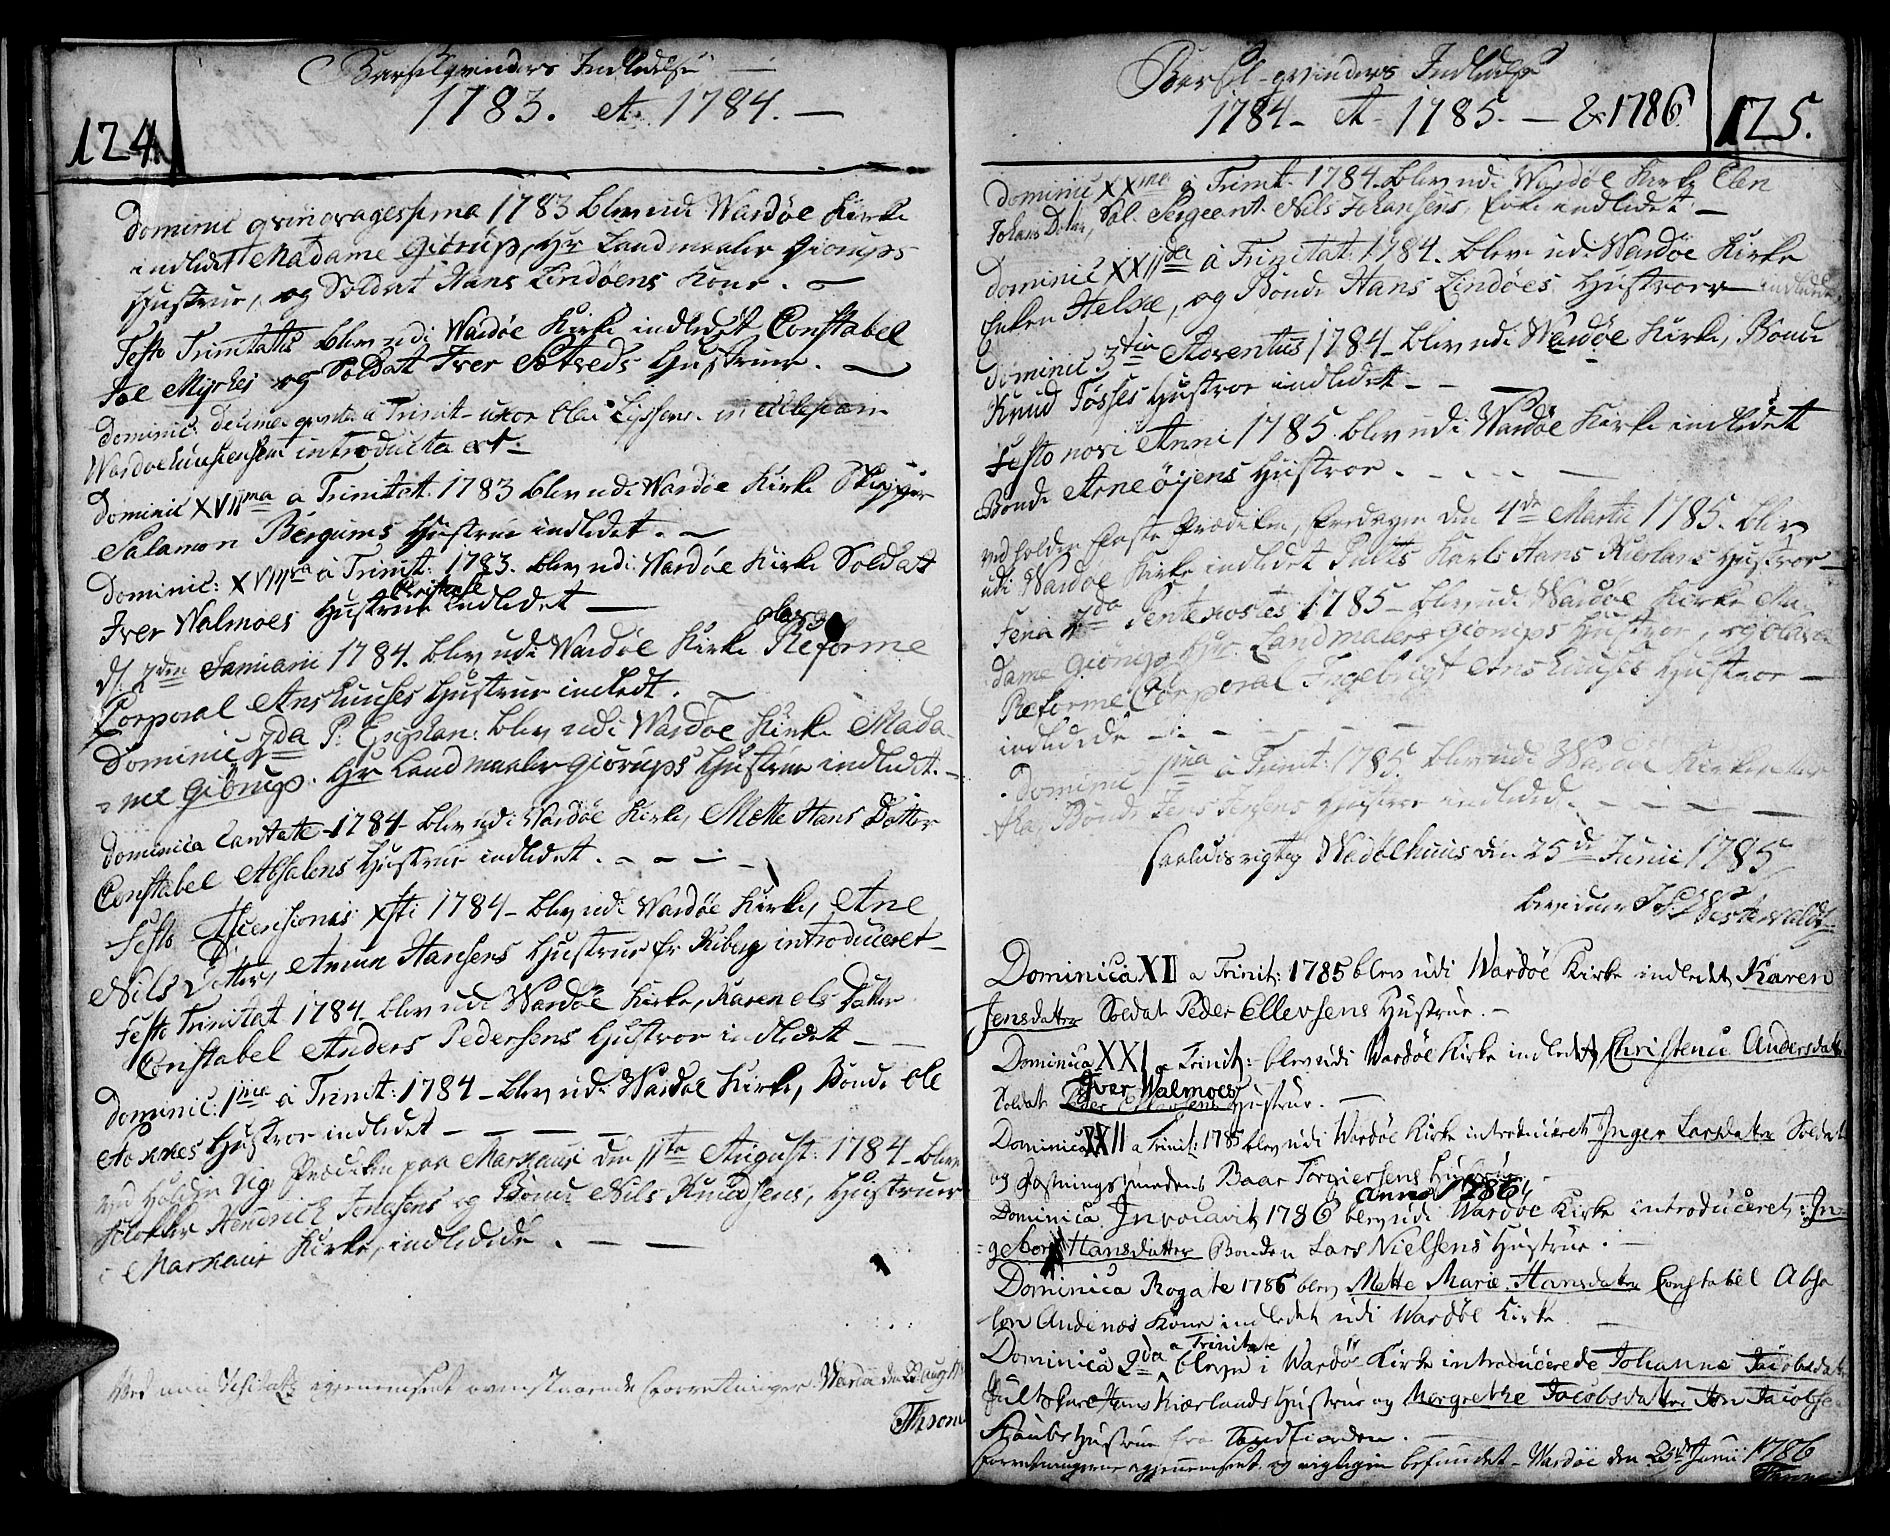 Barselqvinders Indledelse
1783. et 1784.
124
Dominic qvinqvagesima 1783 blev udi Wardøe Kirke
indledt Madame Giörup, Hr Landmaaler Giörups
Hustrue, og Soldat Hans Lindøens Kone.
Festo Trinitatis blev udi Wardøe Kirke indledet Constabel
Joe Myrhes og Soldat Iver Hustruer.
Dominic: decima qvarta a Trinit uxor Lissens in
Wardoehuusiensem introducta est
Dominic XVIIma a Trinitat. 1783 blev udi Wardøe Kirke Skipper
Salamon Bergums Hustrue indledet.
Dominic: XVIII a Trinit: 1783. blev udi Wardøe Kirke Soldat
Iver Walmoes Hustrue indledet
d. 2den Januarii 1784. blev udi Wardøe Kirke Reforme
Corporal Hustrue indledt.
Dominic 2da P: Epiphan: blev udi Wardøe Kirke Mada-
me Giörup. Hr Landmaaler Giörups Hustrue indledt.
Dominica Cantate 1784 blev udi Wardøe Kirke, Mette Hans Datter
Constabel Absalens Hustrue indledet.
Festo Ascensionis Xsti 1784 blev udi Wardøe Kirke, Ane
Nils Datter, Amun Hansens Hustrue fr Kiberg introduceret
Festo Trinitat 1784 blev udi Wardøe Kirke, Karen Ols Datter
Constabel Anders Pedersens Hustroe indledet
Dominic: 1me a Trinit: 1784 blev udi Wardøe Kirke, Bonde Ole
Hustroe indledet
ved Holden Prædiken paa Markaur den 11te August: 1784 blev
Klokker Hendrich Jonesens og Bonde Nils Knudsens, Hustruer
i Markaur Kirke, indledede.
Ved min Visitatz igiennemseet ovenstaaende Forretninger. Wardøe den 23 Aug
Barsel-qvinders Indledelse
1784 et 1785. & 1786
125.
Dominic XXma a Trinit. 1784 blev udi Wardøe Kirke Elen
Johans Dotter, Sal. Sergeant Nils Johansens, Enke indledet
Dominic XXIIda a Trinitat. 1784. blev udi Wardøe Kirke
Enken Helse, og Bonde Hans Lindøes Hustroer indledede
Dominic 3tia Adventus 1784 blev udi Wardøe Kirke, Bonde
Knud Tøsses Hustroe indledet
Festo novi Anni 1785. blev udi Wardøe Kirke indledet
Bonde Arne Øyens Hustroe.
ved holden Faste Prædiken, Fredagen den 4de Martii 1785. blev
udi Wardøe Kirke indledet Karls Hans Kierlans Hustroe
Feria 2da Pentecostes 1785 blev udi Wardøe Kirke Ma-
dame Giörup Hr. Landmaaler Giörups Hustroe, og
Reforme Corporal Ingebrigt Hustroe
indledede
Dominic 1ma a Trinit: 1785. blev udi Wardøe Kirke
Bonde Jens Jensens Hustroe indledet.
saaledis rigtig Wardøehuus den 25de Junii 1785
bevidner
Dominica XII a Trinit: 1785 blev udi Wardøe Kirke indledet Karen
Jensdatter Soldat Peder Ellevsens Hustrue.
Dominica XXI a Trinit: blev udi Wardøe Kirke indledet Christence Andersdatter
Iver Walmoes
Soldat Hustrue.
Dominica XXII a Trinit: 1785 blev udi Wardøe Kirke introduceret Inger Larsdatter Soldat
og Fæstningssmedens Baar Torgiersens Hustrue
Anno 1786
Dominica Invocavit 1786 blev udi Wardøe Kirke introduceret: In-
geborg Hansdatter Bonden Lars Nielsens Hustrue.
Dominica Rogate 1786 blev Mette Marie Hansdatter Constabel Absa
lon Andenæs Kone indledet udi Wardøe Kirke
Dominica 2da a Trinitate bleve i Wardøe Kirke introducerede Johanna Jacobsdatter
Hans Kiærlands Hustrue og Margrethe Jacobsdatter Jon Jacobsen
Hustrue fra Tandfiorden.
Forretningerne igiennemseet og rigtigen befundet Wardøe den Junii 1786